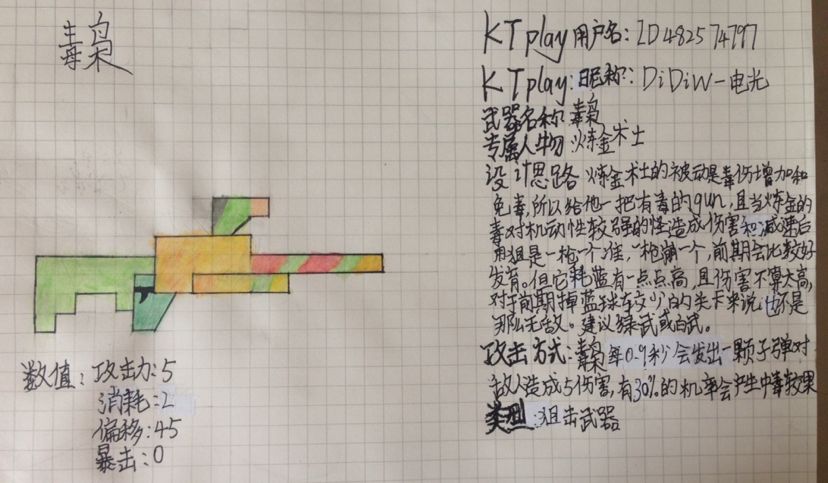 毒枭
数值:攻击力:5
消耗:2
偏移:45
暴击:0
KTplay用户名:ID482574797
KTplay:昵称:DiDiW一电光
武器名称:毒枭
专属人物:炼金术士
设计思路 炼金术士的被动是毒伤增加和
免毒,所以给他一把有毒的gun,且当炼金的
毒对机动性较强的怪造成伤害和减速后
用狙是一枪一个准,一枪崩一个,前期会比较好
发育。但它耗蓝有一点点高,且伤害不算太高,
对于前期掉蓝球较少的关卡来说也还是
那么无敌。建议绿武或白武。
攻击方式:毒枭每0.9秒会发出一颗子弹对
敌人造成5伤害,有30%的机率会产生中毒效果
类型:狙击武器